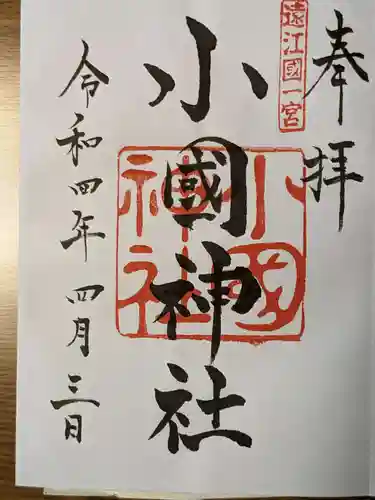 奉拝
遠江國一宮
小國神社
小國神社
令和四年 四月三日